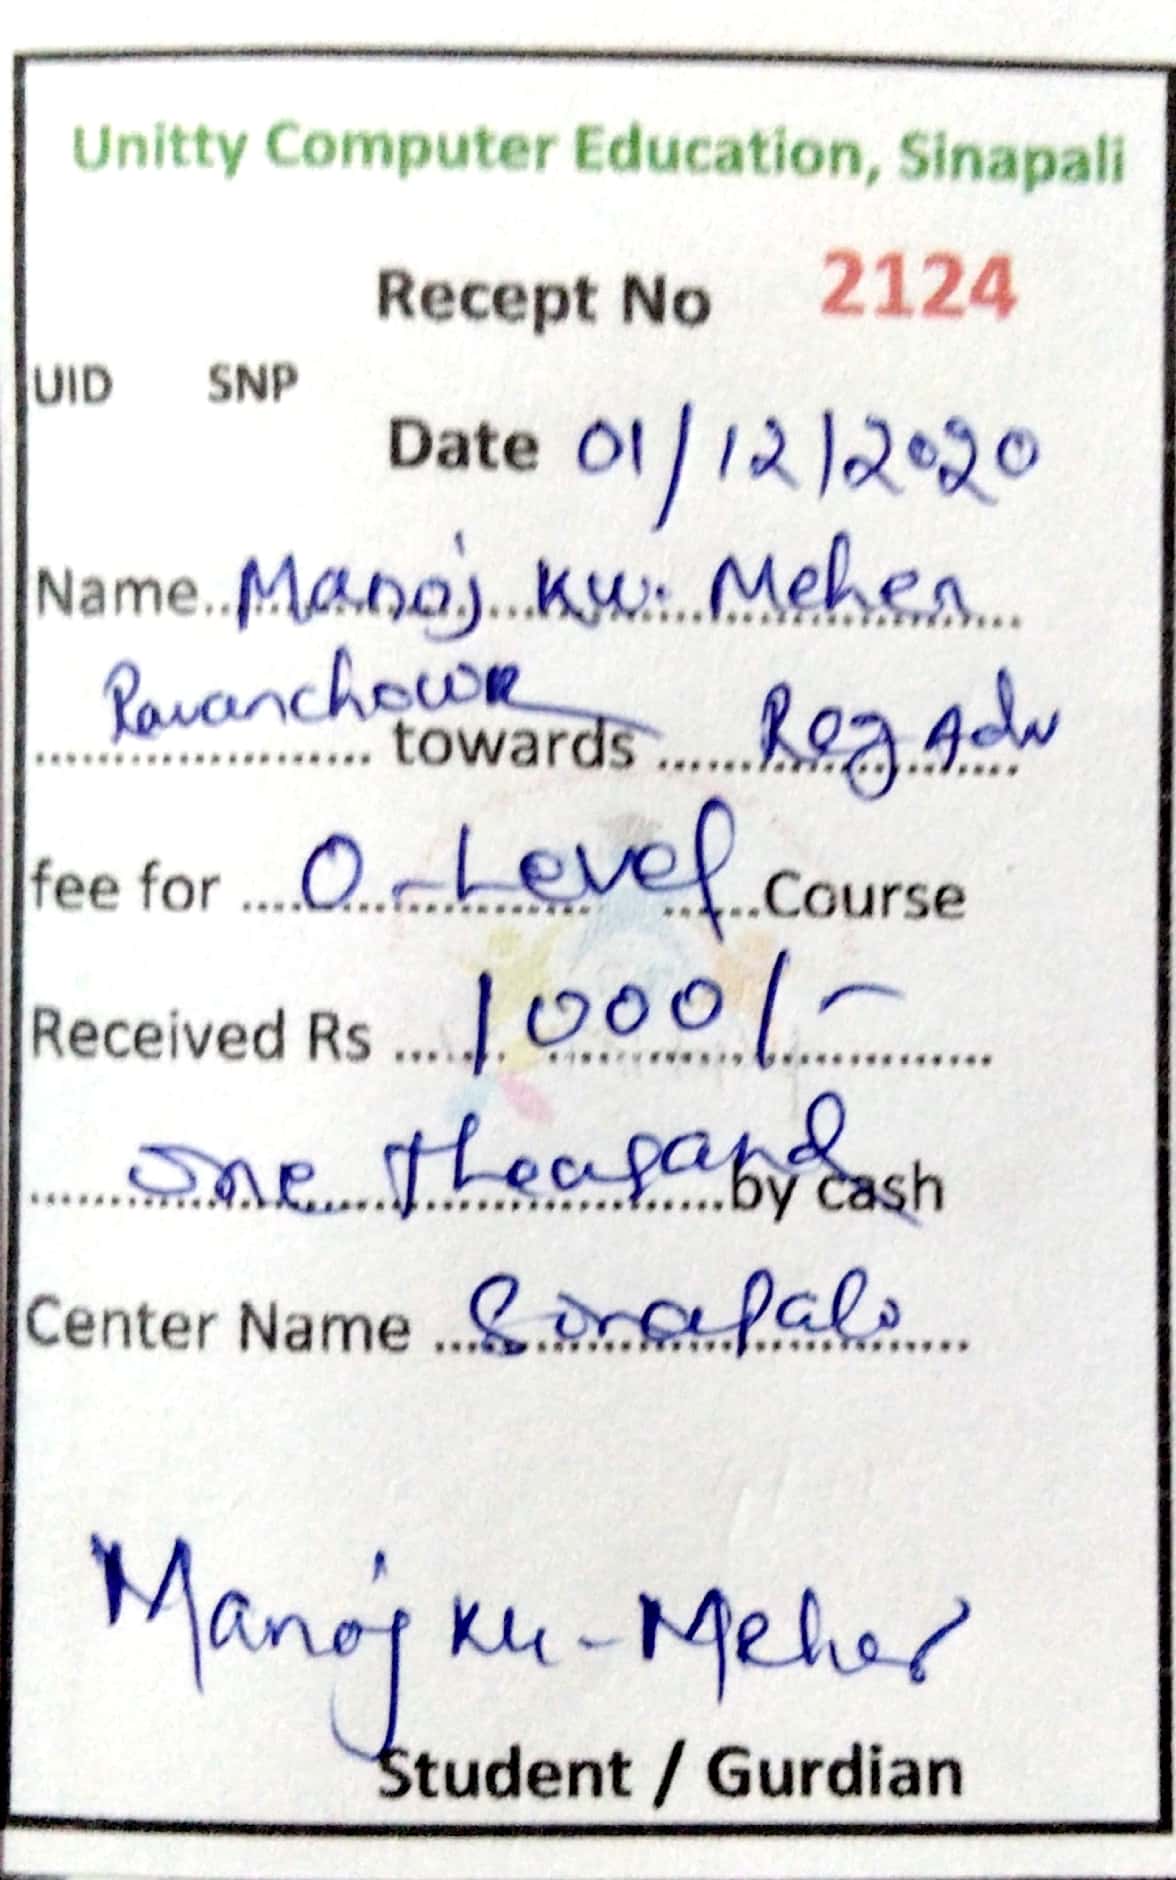 Unitty Computer Education, Sinapali
Recept No 2124
UID SNP
Date 01/12/2020
Name Manoj Ku. Meher
towards Reg Adv
fee for O-Level Course
Received Rs 1000/-
One Thousand by cash
Center Name Sinapali
Manoj Ku-Meher
Student / Gurdian